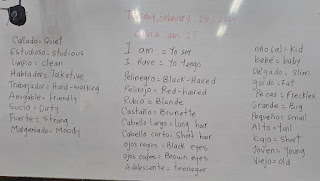 Tuesday, February 20,
Who am I?
I am = Yo soy
I have = Yo tengo
Callado = Quiet
Estudioso = studious
Limpio = Clean
Hablador = Talkative
Trabajador = Hard-working
Amigable = Friendly
Sucio = Dirty
Fuerte = Strong
Malgeniado = Moody
Pelinegro = Black-Hared
Pelirojo = Red-hared
Rubio = Blonde
Castaño = Brunette
Cabello Largo = long hair
Cabello corto = Short hair
ojos negros = Black eyes
ojos cafes = Brown eyes
Adolescente = teenager
niño (a) = Kid
bebe = baby
Delgado = Slim
gordo = Fat
Pecas = freckles
Grande = Big
Pequeño = small
Alto = tall
bajo = Short
Joven = Young
Viejo = Old